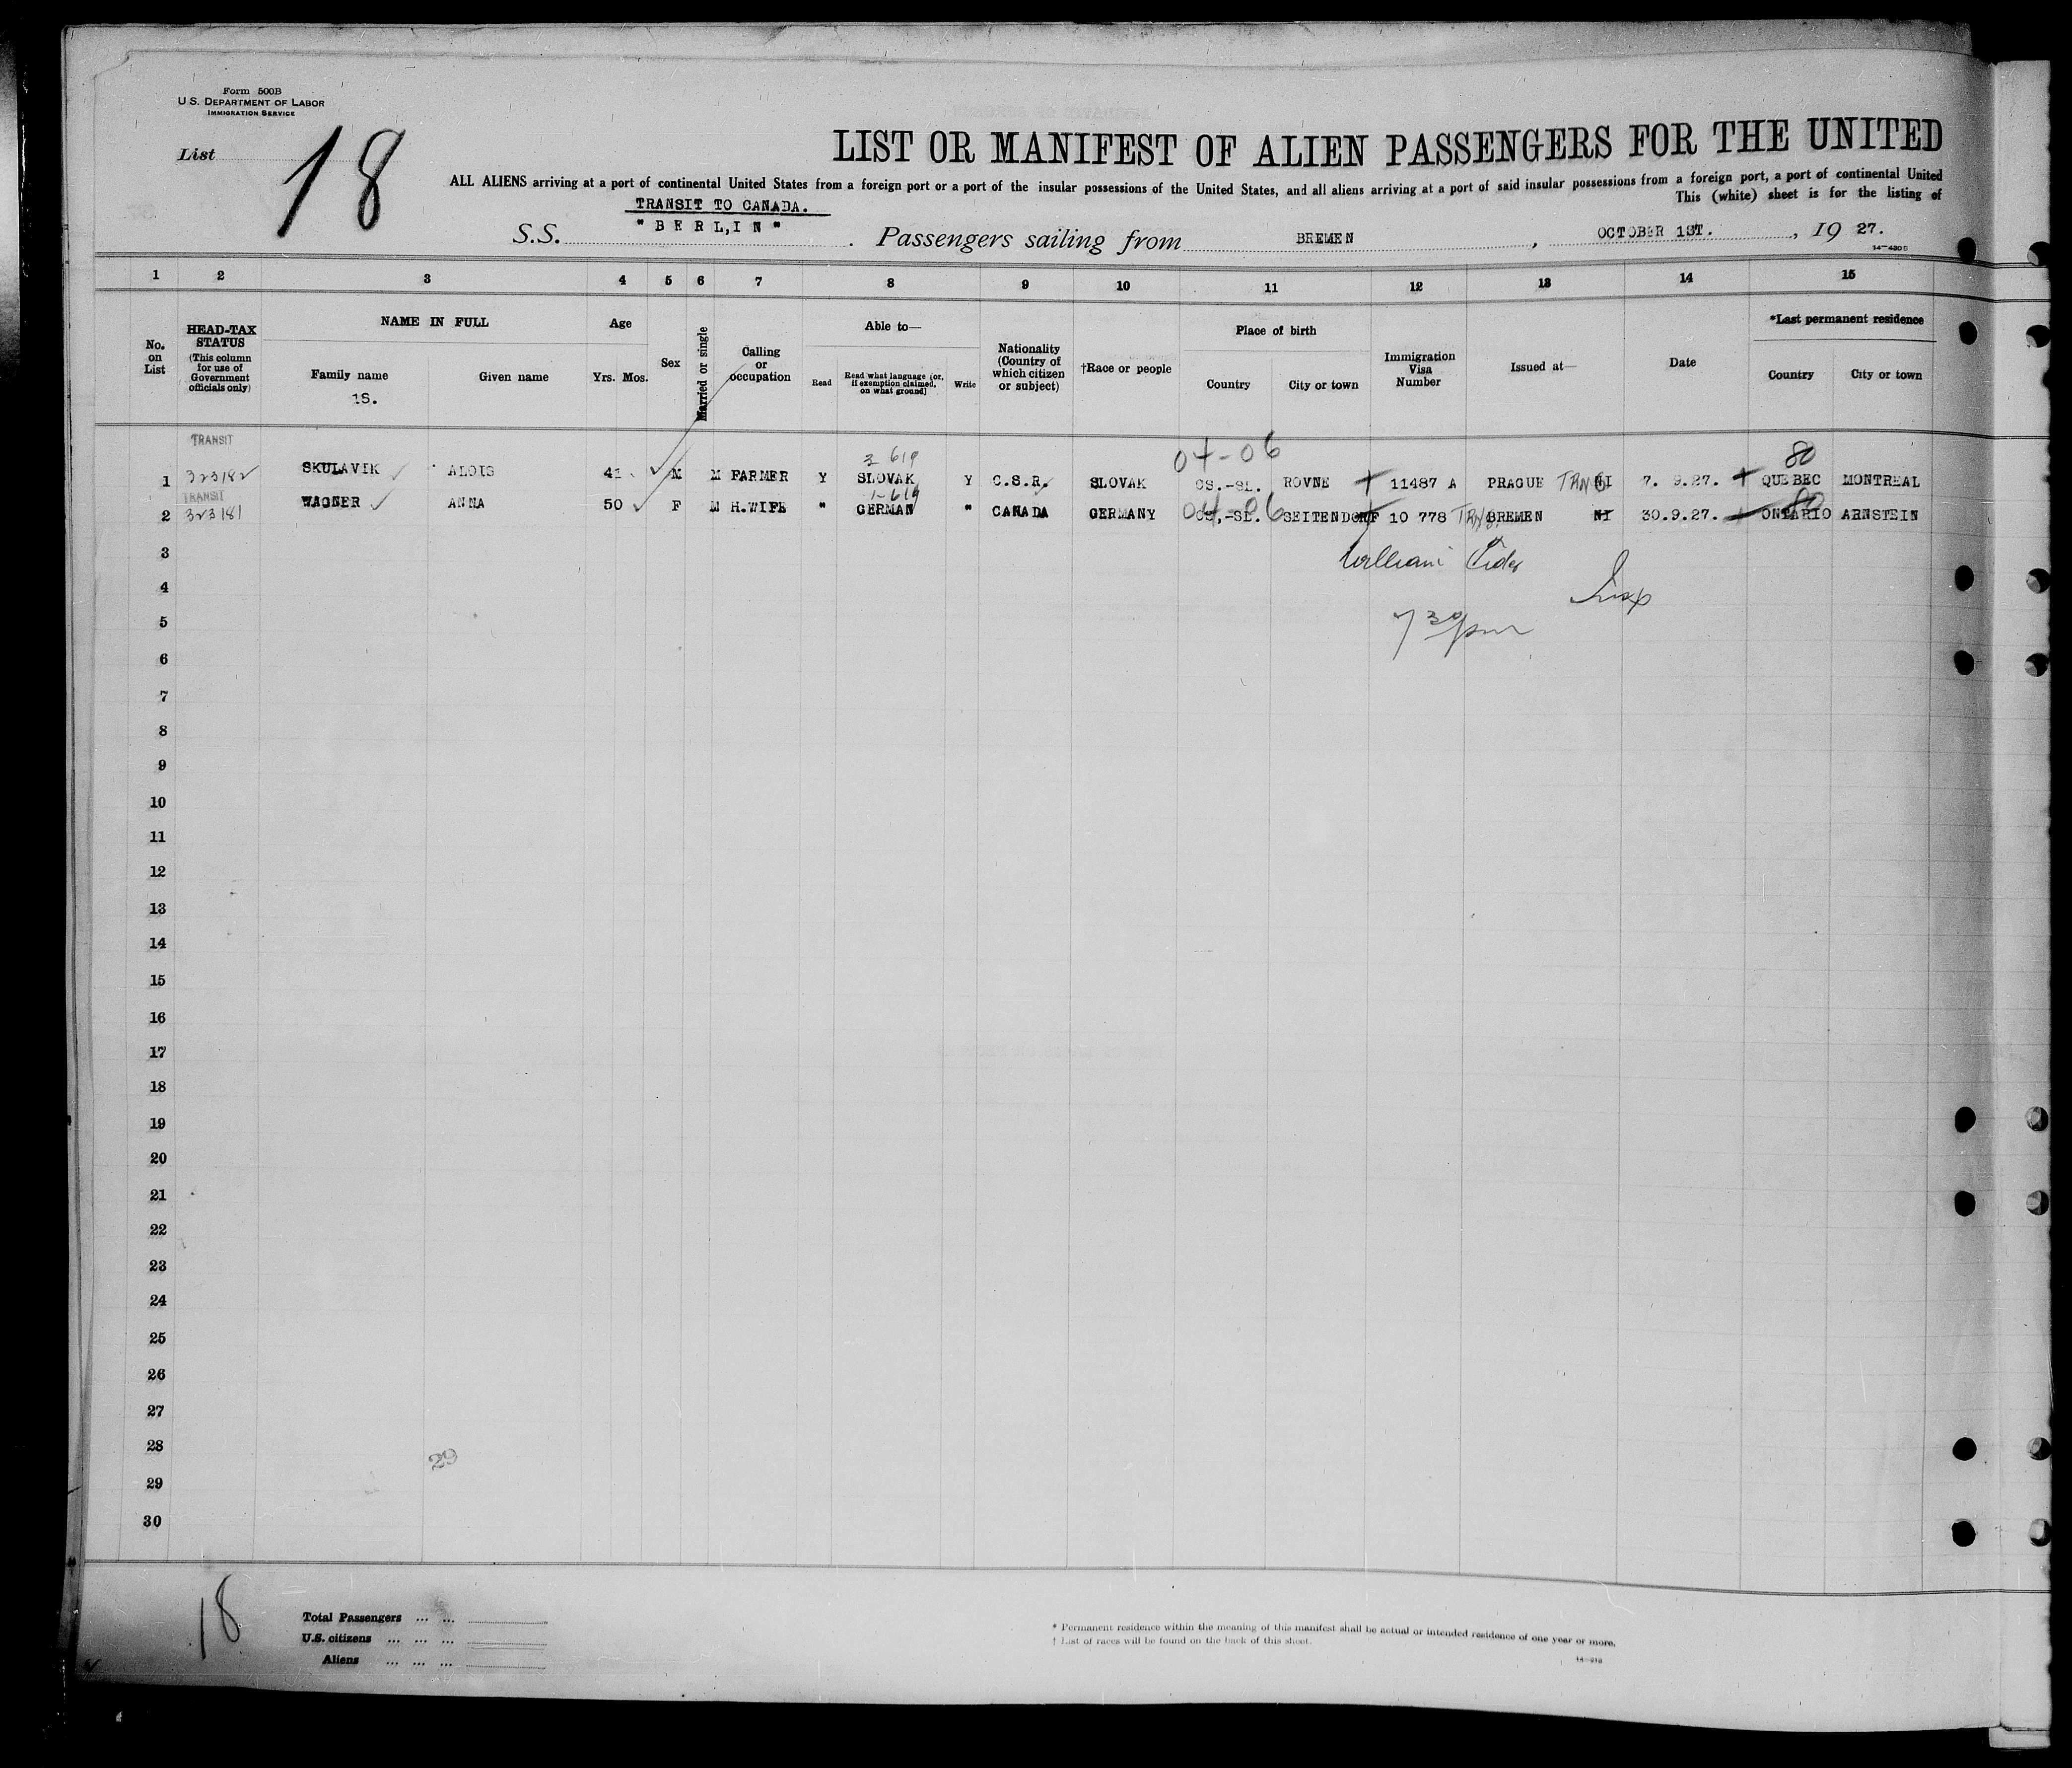 Form 500B
U.S. DEPARTMENT OF LABOR
IMMIGRATION SERVICE
List 18
LIST OR MANIFEST OF ALIEN PASSENGERS FOR THE UNITED
ALL ALIENS arriving at a port of continental United States from a foreign port or a port of the insular possessions of the United States, and all aliens arriving at a port of said insular possessions from a foreign port, a port of continental United
This (white) sheet is for the listing of
TRANSIT TO CANADA.
S.S. "BERLIN". Passengers sailing from BREMEN, OCTOBER 1ST., 19 27.
1 2 3 4 5 6 7 8 9 10 11 12 13 14 15
No. on List
HEAD-TAX STATUS (This column for use of Government officials only)
NAME IN FULL
Family name
Given name
1S.
Age
Yrs. Mos.
Sex
Married or single
Calling or occupation
Able to—
Read
Read what language [or, if exemption claimed, on what ground]
Write
Nationality (Country of which citizen or subject)
†Race or people
Place of birth
Country
City or town
Immigration Visa Number
Issued at—
Date
*Last permanent residence
Country
City or town
TRANSIT
3 619 04-06 80
1 323182 SKULAVIK ALOIS 41 M M FARMER Y SLOVAK Y C.S.R. SLOVAK CS.-SL. ROVNE 11487 A PRAGUE 7. 9.27. QUEBEC MONTREAL
TRANSIT
1-619 04-06 80
2 323181 WAGNER ANNA 50 F M H.WIFE " GERMAN " CANADA GERMANY CS.-SL. SEITENDORF 10 778 BREMEN NI 30.9.27. ONTARIO ARNSTEIN
3
William
4
Insp
5
7 30 pm
6
7
8
9
10
11
12
13
14
15
16
17
18
19
20
21
22
23
24
25
26
27
28
29
29
30
18
Total Passengers ... ...
U.S. citizens ... ... ...
Aliens ... ... ...
* Permanent residence within the meaning of this manifest shall be actual or intended residence of one year or more.
† List of races will be found on the back of this sheet.